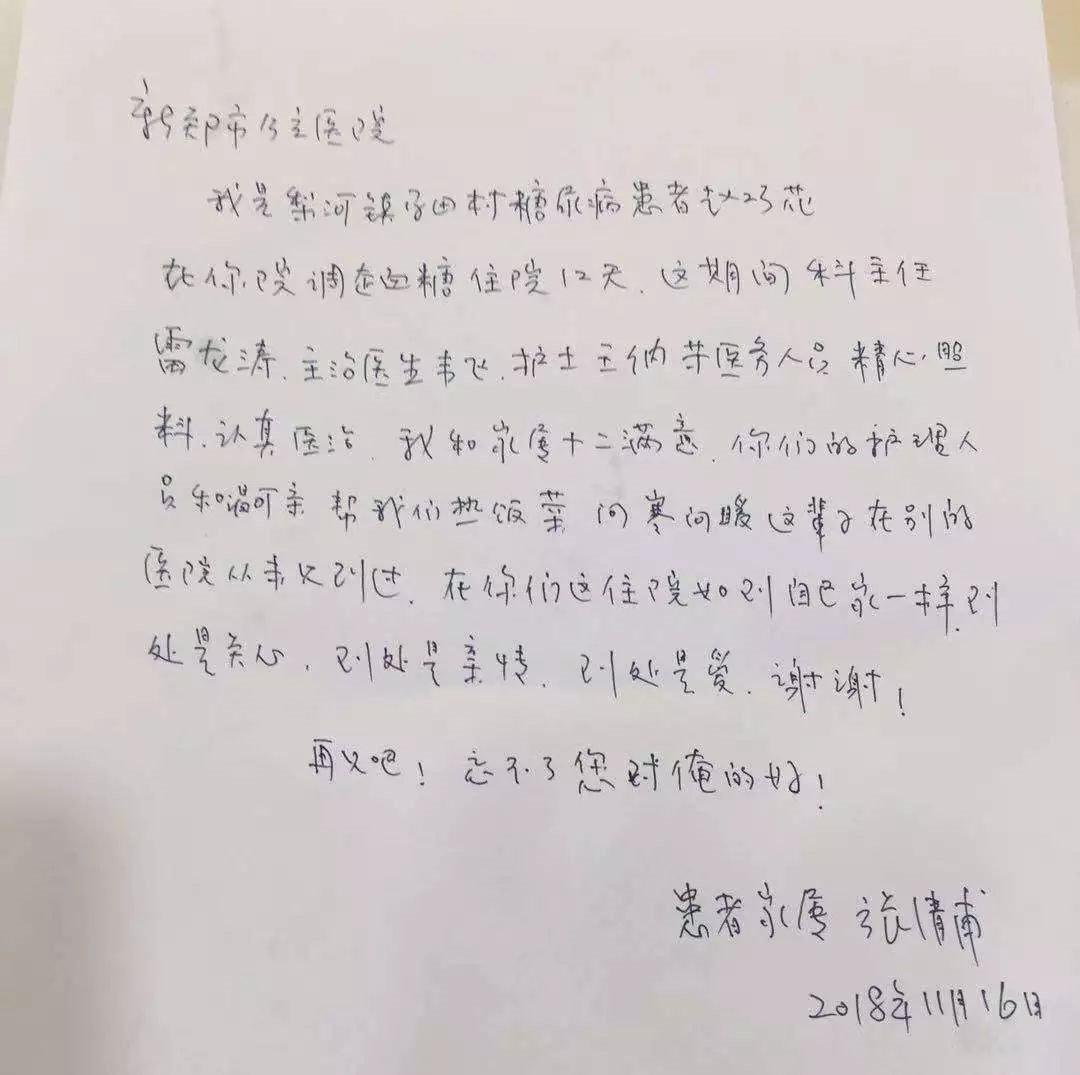 新郑市公立医院
我是梨河镇子田村糖尿病患者赵巧芯
在你院调节血糖住院12天.这期间科主任
雷龙涛.主治医生韦飞.护士王纳等医务人员精心照
料.认真医治.我和家属十二满意.你们的护理人
员和谒可亲帮我们热饭菜问寒问暖这辈子在别的
医院从未见到过.在你们这住院如到自己家一样.到
处是关心.到处是亲情.到处是爱.谢谢!
再见吧!忘不了您对俺的好!
患者家属 张清甫
2018年11月16日